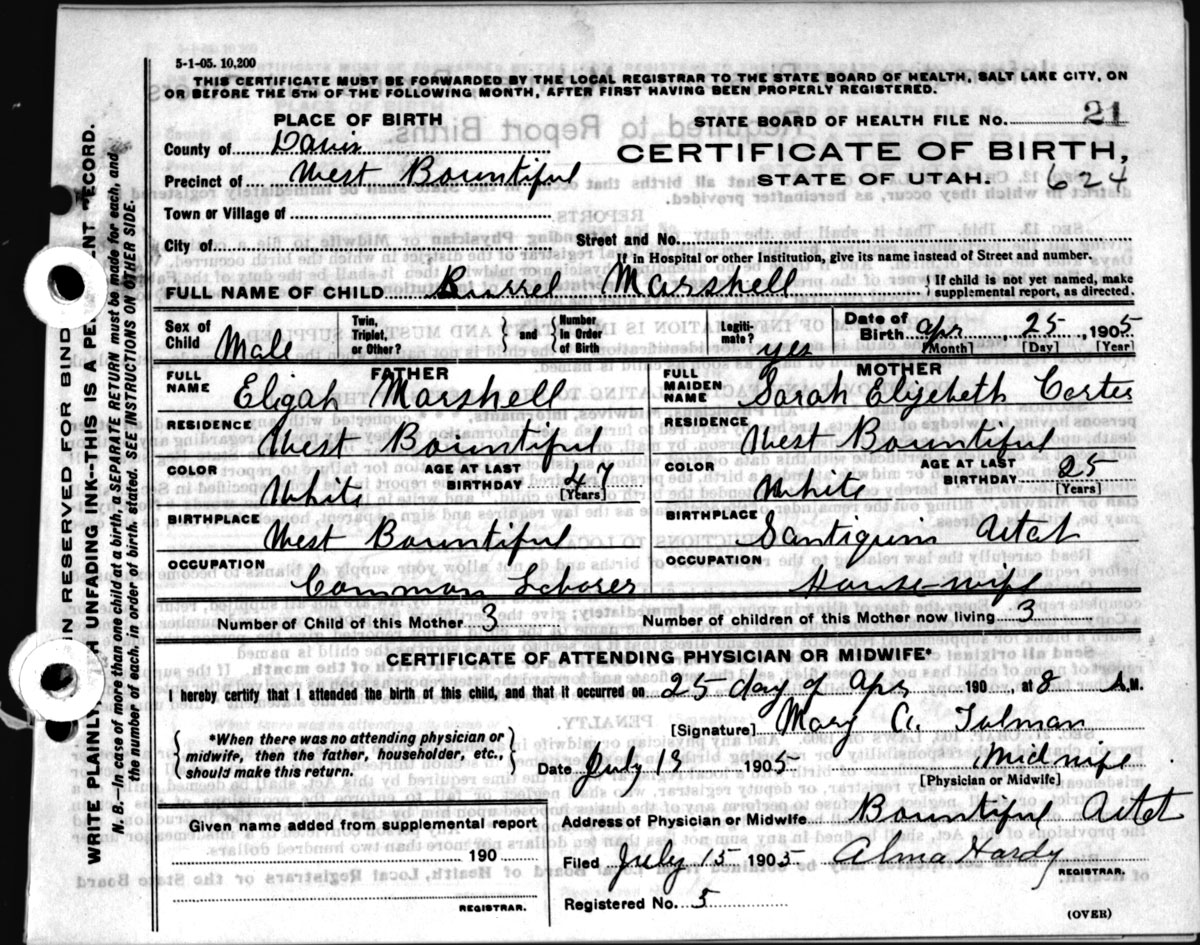 5-1-05. 10,200
THIS CERTIFICATE MUST BE FORWARDED BY THE LOCAL REGISTRAR TO THE STATE BOARD OF HEALTH, SALT LAKE CITY, ON
OR BEFORE THE 5TH OF THE FOLLOWING MONTH, AFTER FIRST HAVING BEEN PROPERLY REGISTERED.
PLACE OF BIRTH
STATE BOARD OF HEALTH FILE No. 21
County of Davis
CERTIFICATE OF BIRTH,
Precinct of West Bountiful
STATE OF UTAH. 624
Town or Village of
City of
Street and No.
If in Hospital or other Institution, give its name instead of Street and number.
FULL NAME OF CHILD Burrel Marshell { If child is not yet named, make
supplemental report, as directed.
Sex of Child Male
Twin, Triplet, or Other? } and { Number in Order of Birth
Legiti-mate? yes
Date of Birth Apr 25, 1905
[Month] [Day] [Year]
FATHER
FULL NAME Eligah Marshell
MOTHER
FULL MAIDEN NAME Sarah Elizebeth Carter
RESIDENCE West Bountiful
RESIDENCE West Bountiful
COLOR White AGE AT LAST BIRTHDAY 47 [Years]
COLOR White AGE AT LAST BIRTHDAY 25 [Years]
BIRTHPLACE West Bountiful
BIRTHPLACE Santiquin Utah
OCCUPATION Common Laborer
OCCUPATION House-wife
Number of Child of this Mother 3
Number of children of this Mother now living 3
CERTIFICATE OF ATTENDING PHYSICIAN OR MIDWIFE*
I hereby certify that I attended the birth of this child, and that it occurred on 25 day of Apr 190 , at 8 A.M.
[Signature] Mary A. Tolman
{ *When there was no attending physician or
midwife, then the father, householder, etc.,
should make this return. }
Date July 13 1905 Midwife
[Physician or Midwife]
Given name added from supplemental report
Address of Physician or Midwife Bountiful Utah
190
Filed July 15 1905 Alma Hardy
REGISTRAR.
REGISTRAR.
Registered No. 5
(OVER)
IN RESERVED FOR BIND
WRITE PLAINLY H UNFADING INK--THIS IS A PE NT RECORD.
N. B.--In case of more than one child at a birth, a SEPARATE RETURN must be made for each, and
the number of each, in order of birth, stated. SEE INSTRUCTIONS ON OTHER SIDE.